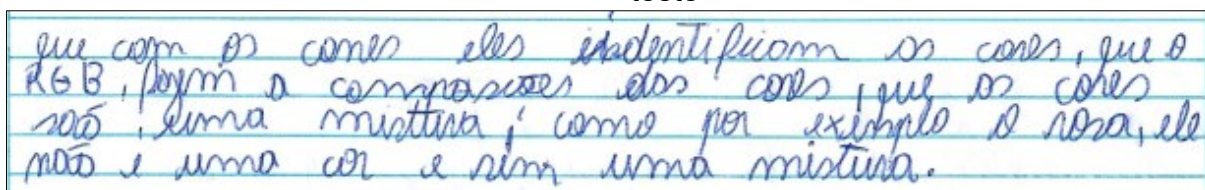 que com os cones eles indentificam as cores, que o
RGB, fazem a composcões das cores, que as cores
são, uma misttura, como por exemplo o rosa, ele
não é uma cor e sim uma mistura.